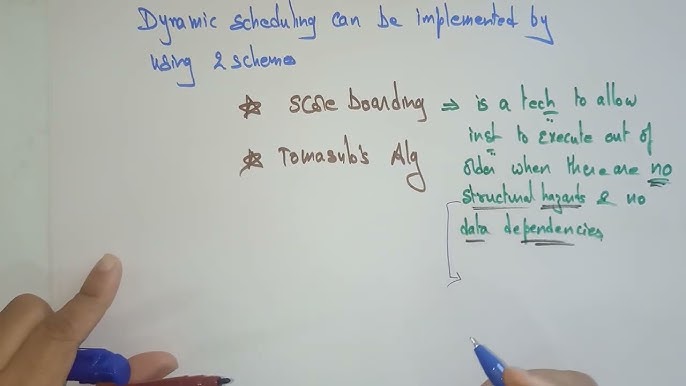 Dynamic scheduling can be implemented by
using 2 scheme
☆ Score boarding ⇒ is a tech to allow
inst to execute out of
☆ Tomasulo's Alg
order when there are no
structural hazards & no
data dependencies